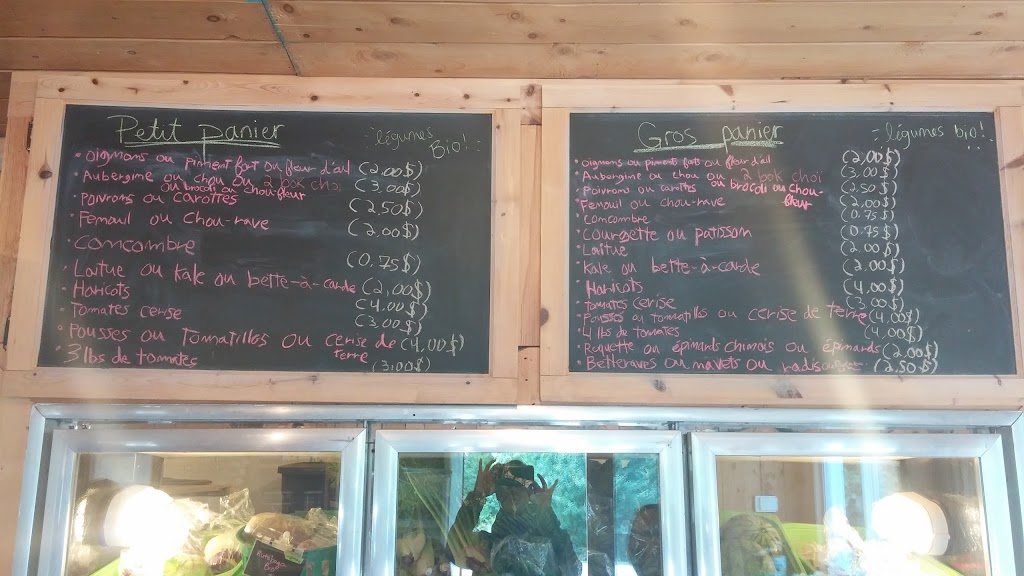 Petit panier
légumes
Bio!
• Oignons ou Piment fort ou fleur d'ail (2,00$)
• Aubergine ou chou ou 2 bok choi (3,00$)
ou brocoli ou chou-fleur
• Poivrons ou carottes (2,50$)
• Fenouil ou chou-rave (2,00$)
• concombre (0.75$)
• Laitue ou Kale ou bette-à-carde (2,00$)
• Haricots (4,00$)
• Tomates cerise (3,00$)
• Pousses ou Tomatillos ou cerise de terre (4,00$)
• 3 lbs de tomates (3,00$)
Gros panier
légumes bio!
• Oignons ou piments forts ou fleur d'ail (2,00$)
• Aubergine ou chou ou 2 bok choi (3,00$)
ou brocoli ou chou-fleur
• Poivrons ou carottes (2,50$)
• Fenouil ou chou-rave (2,00$)
• Concombre (0.75$)
• Courgette ou patisson (0.75$)
• Laitue (2,00$)
• Kale ou bette-à-carde (2,00$)
• Haricots (4,00$)
• Tomates cerise (3,00$)
• Pousses ou tomatillo ou cerise de terre (4,00$)
• 4 lbs de tomates (4,00$)
• Roquette ou épinards chinois ou épinards (2,00$)
• Betteraves ou navets ou radis (2.50$)